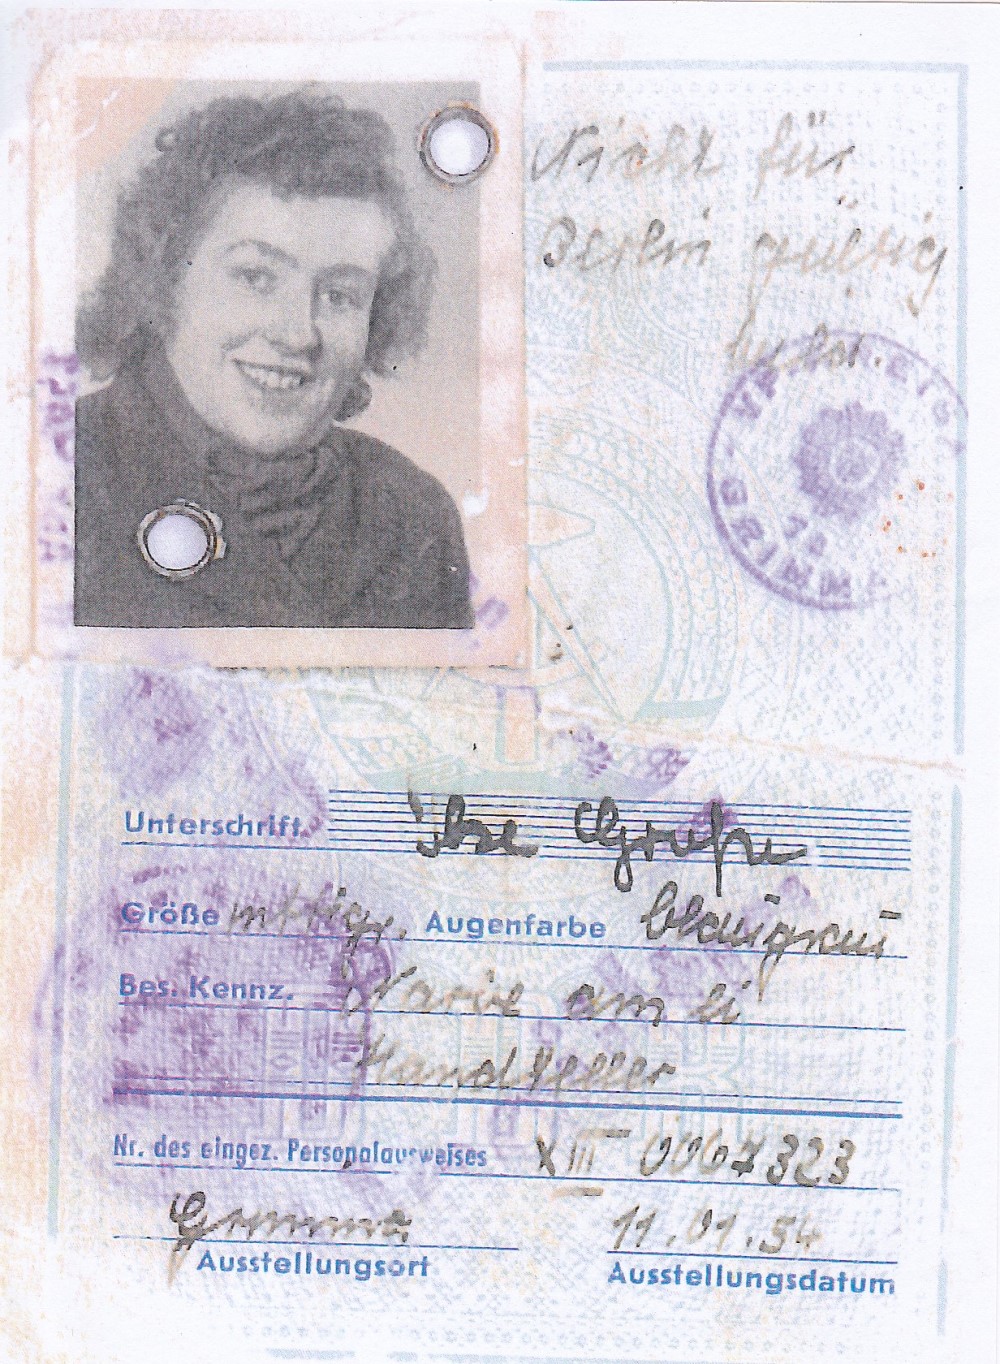 Nicht für
Berlin gültig
VP
GRIMMA
Unterschrift Ilse
Größe Augenfarbe blaugrau
Bes. Kennz. Narbe am li
Handteller
Nr. des eingez. Personalausweises XIII 0067323
Grimma 11.01.54
Ausstellungsort Ausstellungsdatum